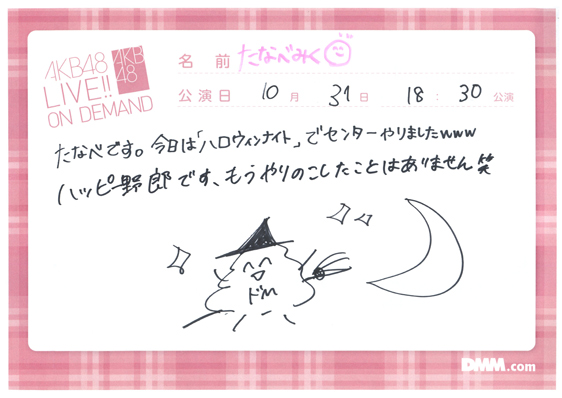 AKB48
LIVE!!
ON DEMAND
AKB
48
名 前 たなべみく
公演日 10月 31日 18:30公演
たなべです。今日は「ハロウィンナイト」でセンターやりましたwww
ハッピ野郎です、もうやりのこしたことはありません笑
ドM
DMM.com